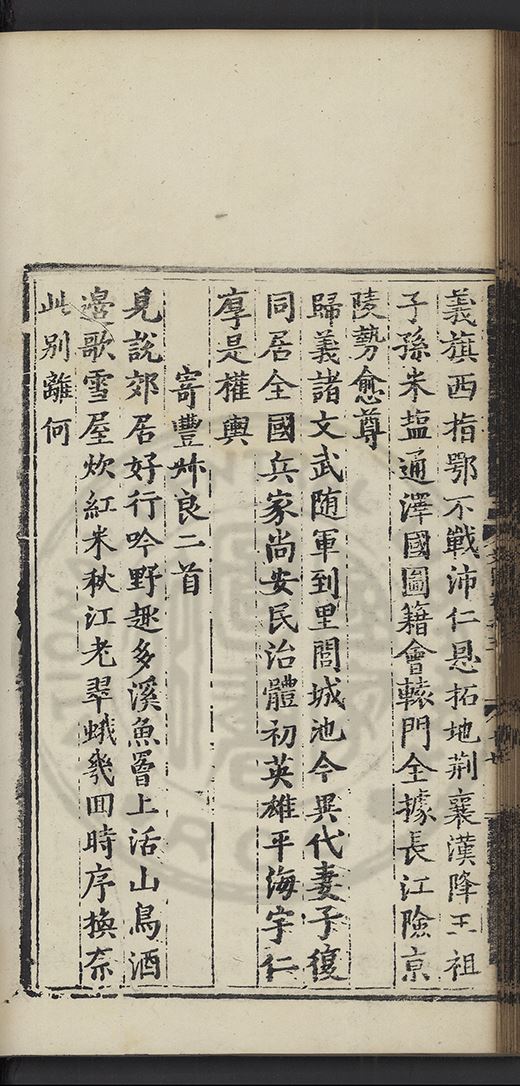 義旗西指鄂不戰沛仁恩拓地荆襄漢降王祖
子孫米塩通澤國圖籍會轅門全據長江險京
陵勢愈尊
歸義諸文武随軍到里閭城池今異代妻子復
同居全國兵家尚安民治體初英雄平海宇仁
厚是權輿
寄豐叔良二首
見說郊居好行吟野趣多溪魚罾上活山鳥酒
邊歌雪屋炊紅米秋江老翠蛾幾回時序換奈
此别離何